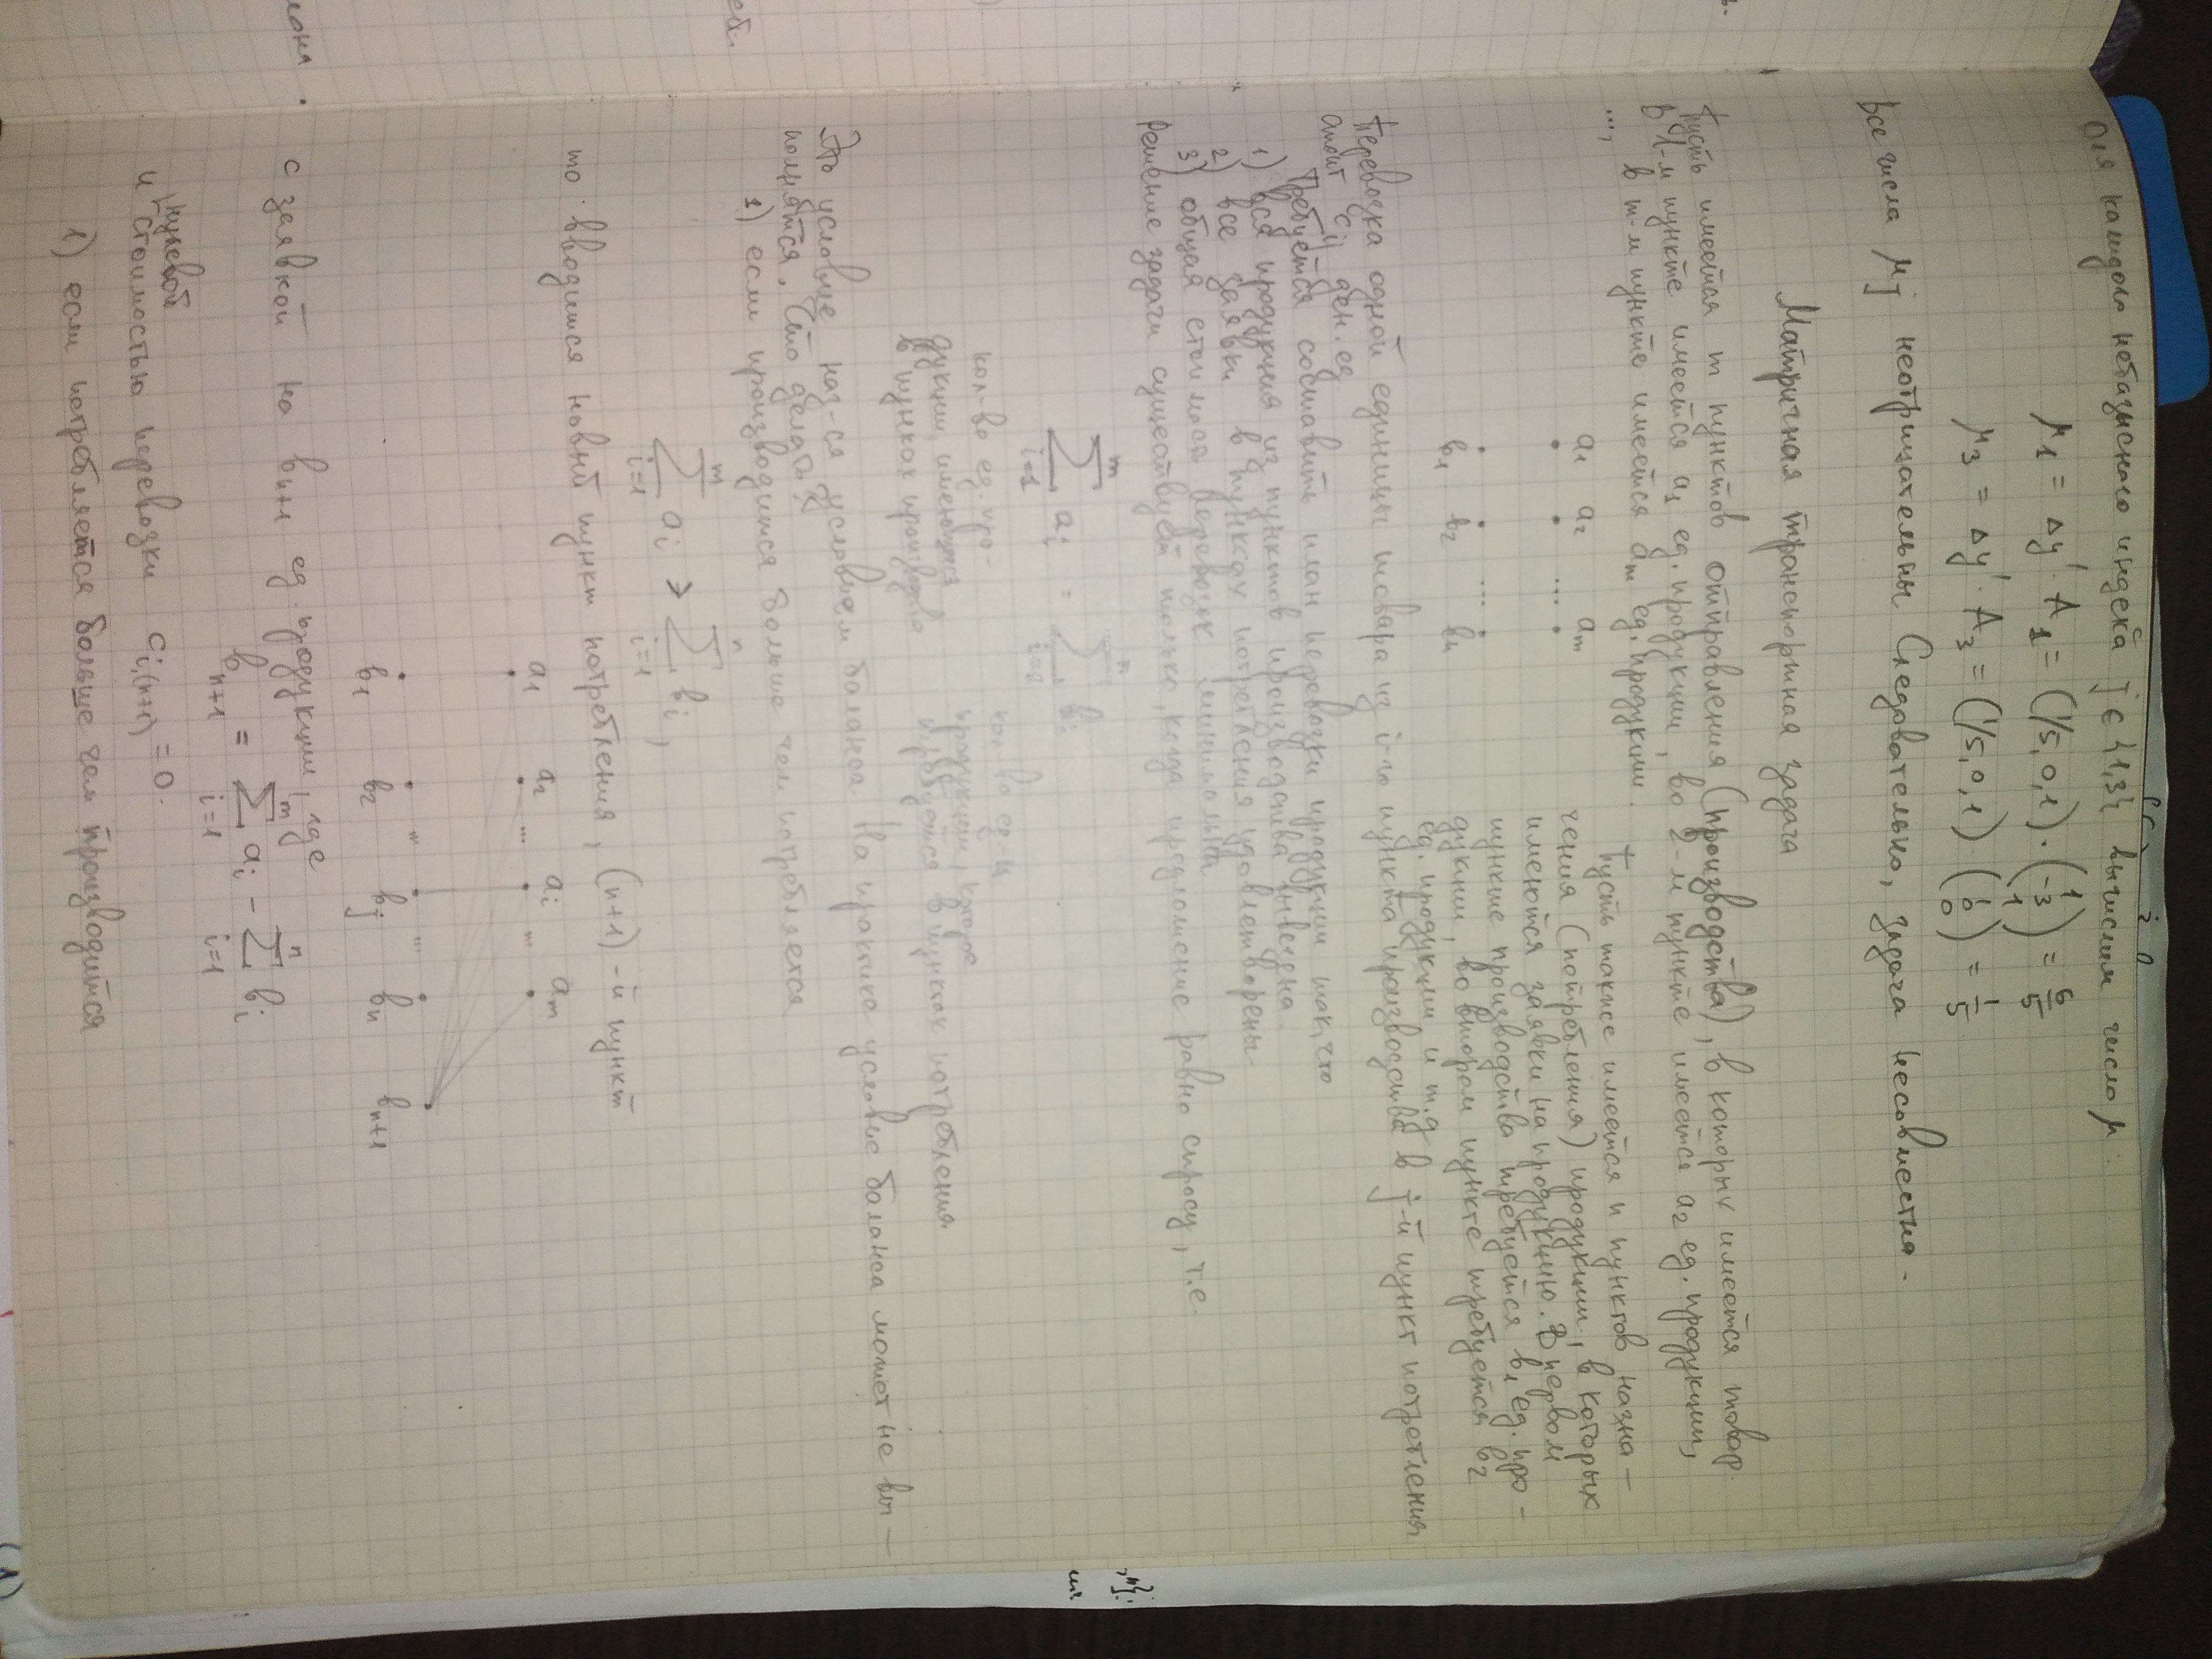 Для каждого небазисного индекса j ∈ {1,3} вычислим число μ.
μ₁ = Δy' · A₁ = (1/5, 0, 1) · (1 -3 1) = 6/5
μ₃ = Δy' · A₃ = (1/5, 0, 1) · (1 0 0) = 1/5
Все числа μj неотрицательны Следовательно, задача несовместна.
Матричная транспортная задача
Пусть имеется m пунктов отправления (производства), в которых имеется товар.
В 1-м пункте имеется a₁ ед. продукции, во 2-м пункте имеется a₂ ед. продукции,
..., в m-м пункте имеется am ед. продукции.
a₁ a₂ ... am
b₁ b₂ ... bn
Пусть также имеется n пунктов назна-
чения (потребления) продукции, в которых
имеются заявки на продукцию. В первом
пункте производства требуется b₁ ед. про-
дукции, во втором пункте требуется b₂
ед. продукции и т.д
Перевозка одной единицы товара из i-го пункта производства в j-й пункт потребления
стоит cij ден. ед
Требуется составить план перевозки продукции так, что
1) вся продукция из пунктов производства вывезена.
2) все заявки в пунктах потребления удовлетворены.
3) общая стоимость перевозок минимальна
Решение задачи существует только, когда предложение равно спросу, т.е.
m∑i=1 ai = n∑i=1 bi
кол-во ед. про-
дукции, имеющееся
в пунках производства
кол-во ед-ц
продукции, которое
требуется в пунктах потребления.
Это условие наз-ся условием баланса. На практике условие баланса может не вы-
полнятся. Что делать?
1) если производится больше чем потребляется
m∑i=1 ai > n∑i=1 bi,
то вводится новый пункт потребления, (n+1)-й пункт
a₁ a₂ ... ai ... am
b₁ b₂ ... bj ... bn bn+1
с заявкой на bn+1 ед. продукции, где
bn+1 = m∑i=1 ai - n∑i=1 bi
нулевой
и стоимостью перевозки ci,(n+1) = 0.
1) если потребляется больше чем производится